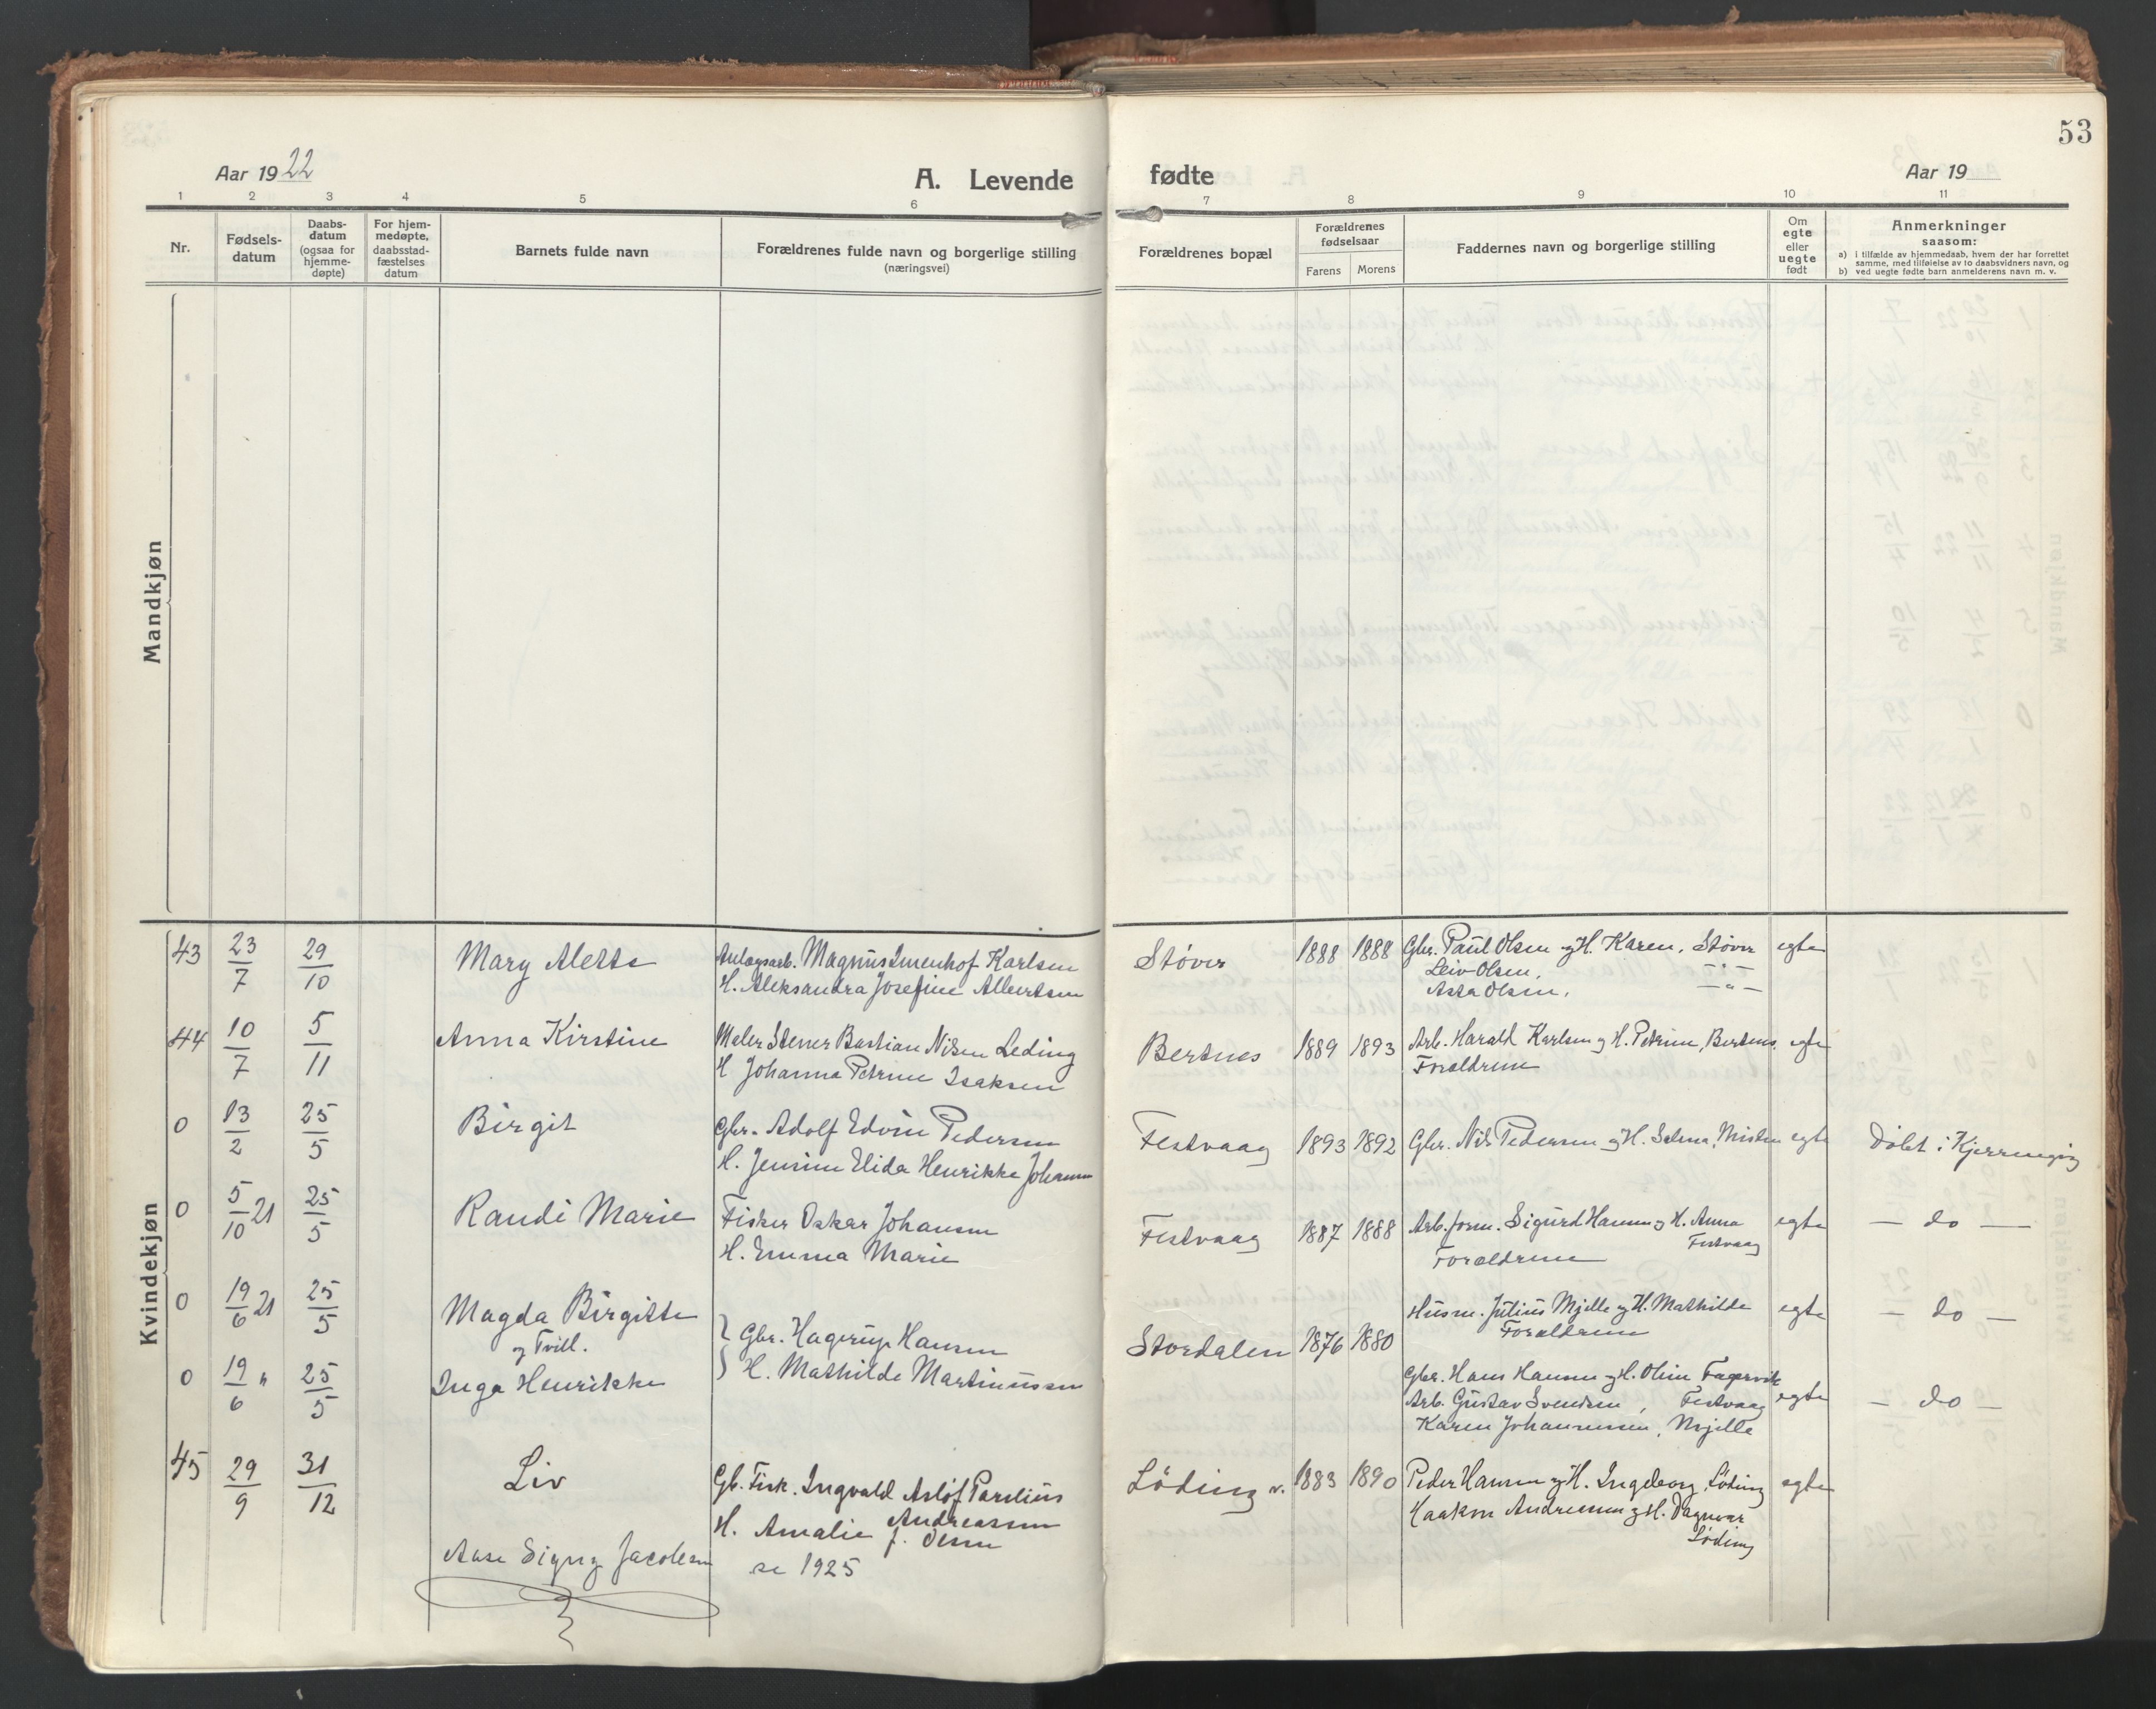 53
Aar 1922
A. Levende fødte
Aar 19
1 2 3 4 5 6 7 8 9 10 11
Nr.
Fødsels-
datum
Daabs-
datum
(ogsaa for
hjemme-
døpte)
For hjem-
medøpte,
daabsstad-
fæstelses
datum
Barnets fulde navn
Forældrenes fulde navn og borgerlige stilling
(næringsvei)
Forældrenes bopæl
Forældrenes
fødselsaar
Farens Morens
Faddernes navn og borgerlige stilling
Om
egte
eller
uegte
født
Anmerkninger
saasom:
a) i tilfælde av hjemmedaab, hvem der har forrettet
samme, med tilføielse av to daabsvidners navn, og
b) ved uegte fødte barn anmelderens navn m. v.
Mandkjøn
Kvindekjøn
43 23/7 29/10 Mary Alette
Anlægsarb. Magnus Imenhof Karlsen
H. Aleksandra Josefine Albertsen
Støver 1888 1888
Gbr. Paul Olsen og H. Karen, Støver
Leiv Olsen, — " —
Asta Olsen, — " —
egte
44 10/7 5/11 Anna Kirstine
Maler Stener Bastian Nilsen Leding
H Johanna Petrine Isaksen
Bertnes 1889 1893
Arb. Harald Karlsen og H. Petrine, Bertnes.
Forældrene
egte
0 13/2 25/5 Birgit
Gbr. Adolf Edvin Pedersen
H. Jensine Elida Henrikke Johansen
Festvaag 1893 1892
Gbr. Nils Pedersen og H. Selma, Misten
egte
Døbt i Kjerringøy
0 5/10 21 25/5 Randi Marie
Fisker Oskar Johansen
H. Emma Marie
Festvaag 1887 1888
Arb. form. Sigurd Hansen og H. Anna
Festvaag
Forældrene
egte
— do —
0 19/6 21 25/5 Magda Birgitte
og Tvill.
0 19/6 " 25/5 Inga Henrikke
Gbr. Hagerup Hansen
H. Mathilde Martinussen
Stordalen 1876 1880
Husm. Julius Mjelle og H. Mathilde
Forældrene
egte
— do —
Gbr. Hans Hansen og H. Oline Fagervik
Arb. Gustav Svendsen, Festvaag
Karen Johannessen, Mjelle
egte
— do —
45 29/9 31/12 Liv
Gb. Fisk. Ingvald Asløf Parelius
Andreassen
H. Amalie f. Olsen
Löding v. 1883 1890
Peder Hansen og H. Ingeborg, Löding
Haakon Andreassen og H. Dagmar
Löding
egte
Aase Signy Jacobsen se 1925